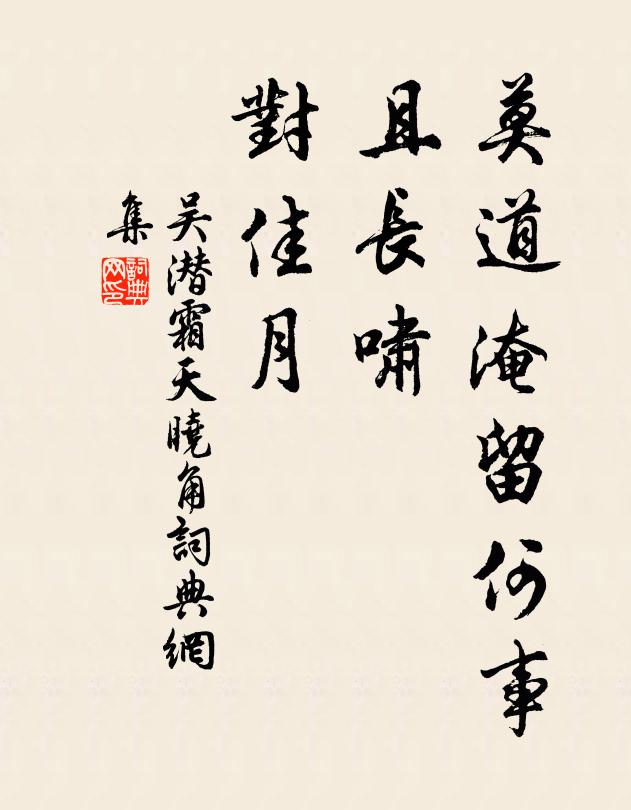 莫道淹留何事
且長嘯
對佳月
吴潛霜天曉角詞典網
集
詞典網印